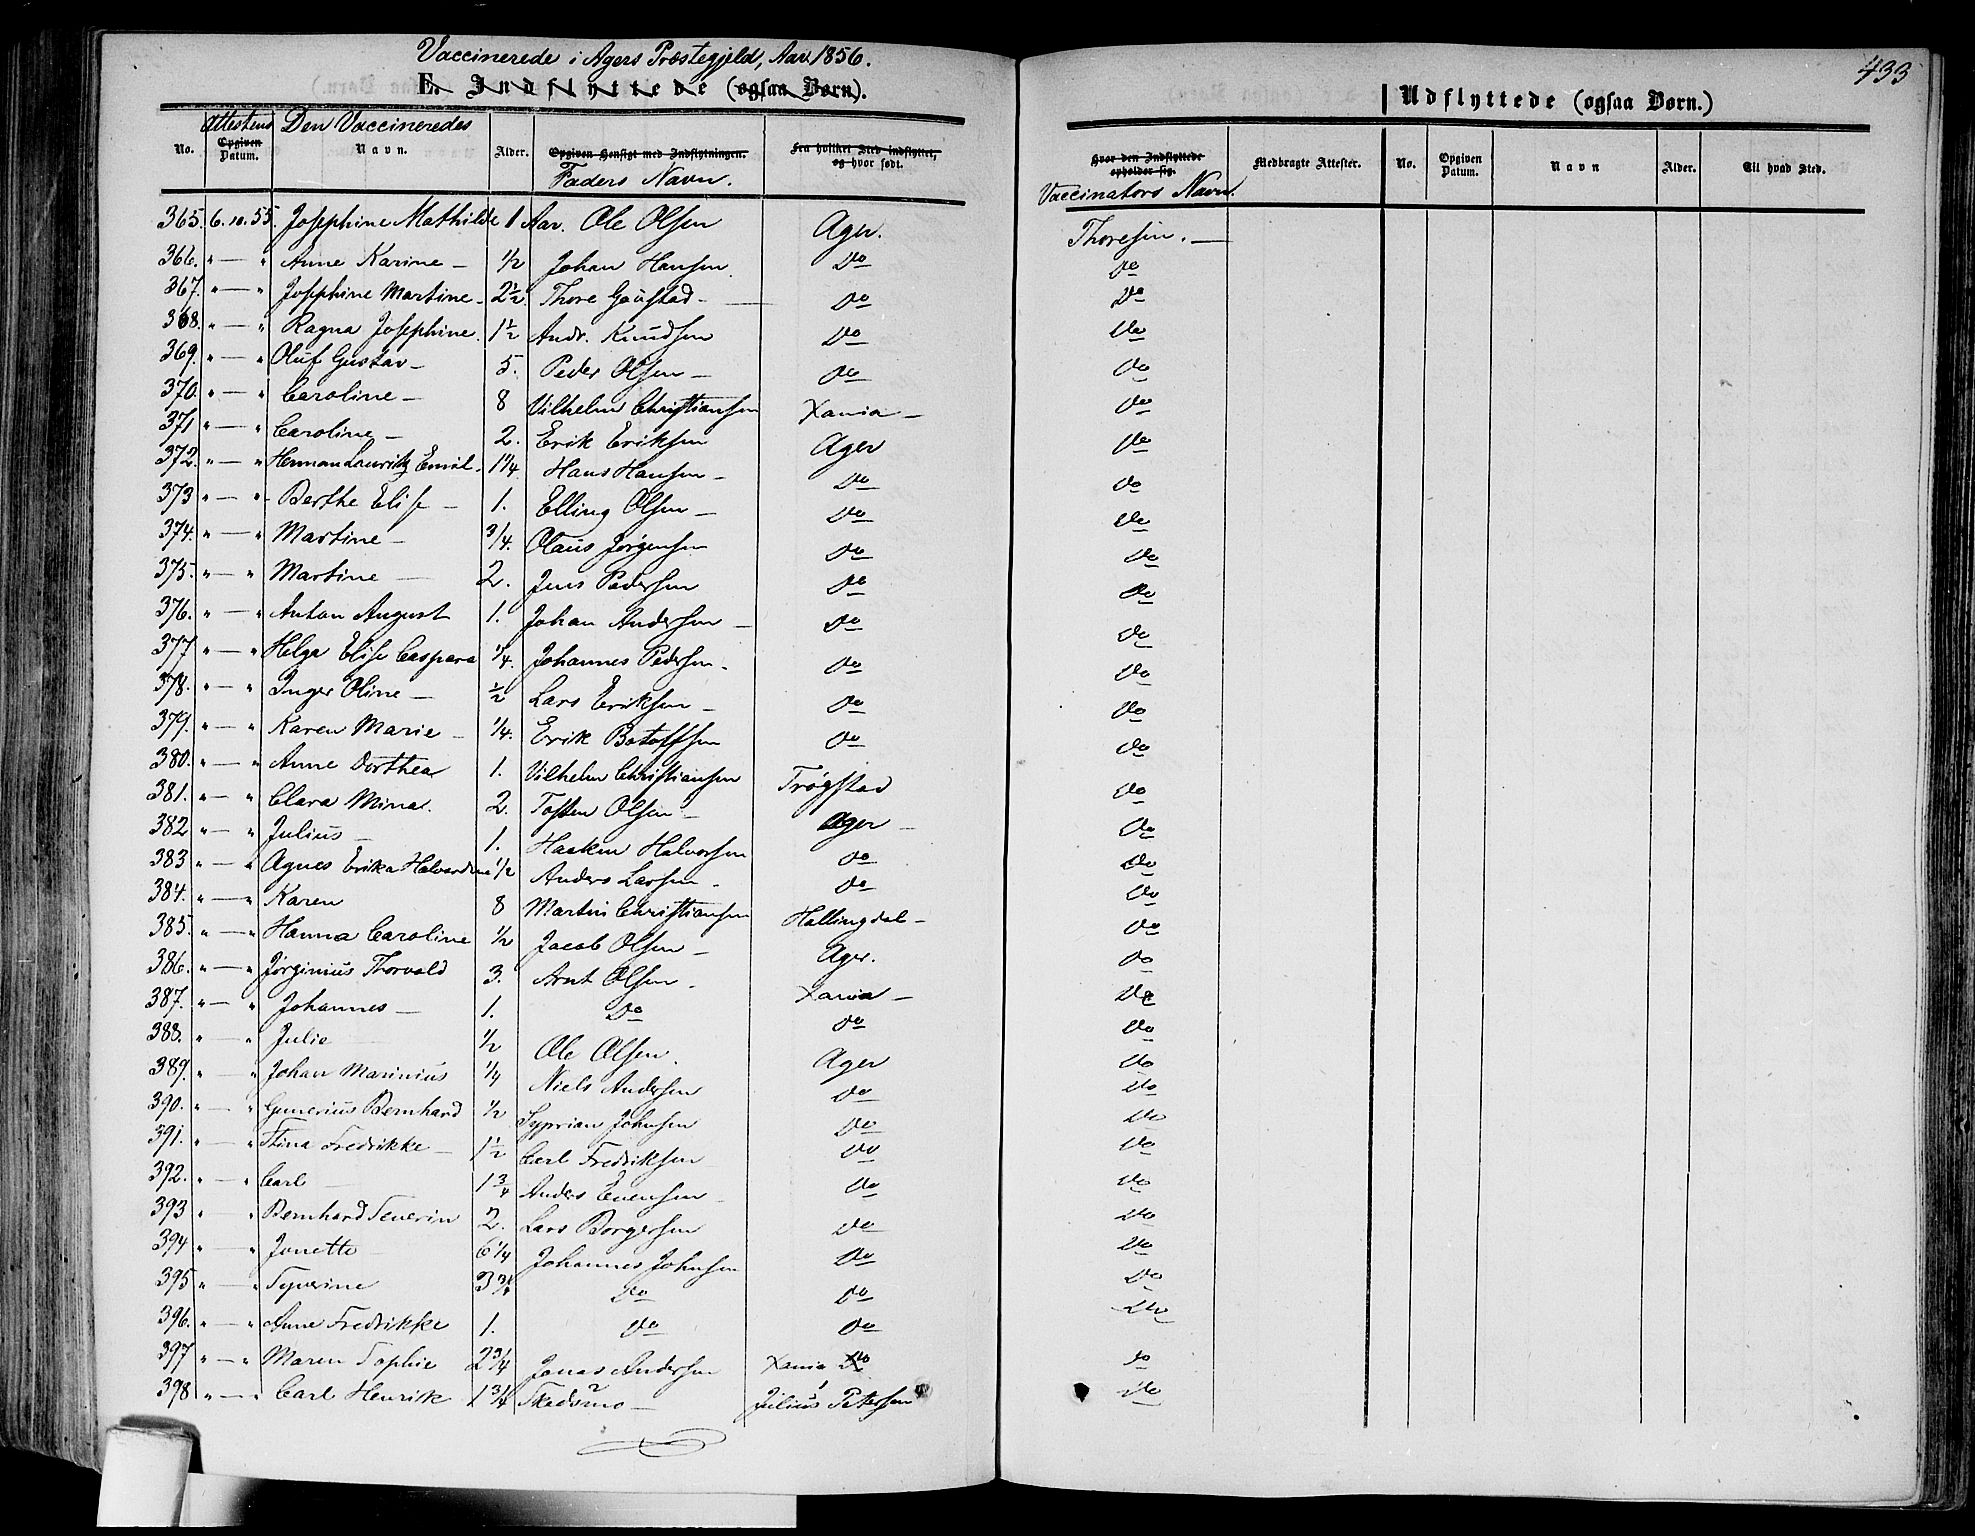 Vaccinerede i Agers Præstegjeld, Aar 1856.
433
E. Indflyttede (ogsaa Børn).
Udflyttede (ogsaa Børn.)
No. Attestens Opgiven Datum. Den Vaccineredes Navn. Alder. Opgiven Hensigt med Indflytningen. Faders Navn. Fra hvilket Sted indflyttet, og hvor født. Hvor den Indflyttede opholder sig. Vaccinators Navn. Medbragte Attester. No. Opgiven Datum. Navn Alder. Til hvad Sted.
365. 6.10.55. Josephine Mathilde 1 Aar. Ole Olsen Ager. Thoresen. —
366. " — " Anne Karine — 1/2 Johan Hansen. Do Do
367. " — " Josephine Martine — 2 1/2 Thore Gaustad — Do Do
368. " — " Ragna Josephine. 1 1/2 Andr. Knudsen Do Do
369. " — " Oluf Gustav — 5. Peder Olsen — Do Do
370. " — " Caroline — 8 Vilhelm Christiansen Xania — Do
371 " — " Caroline — 2. Erik Eriksen Ager Do
372. " — " Herman Lauritz Emil. 1 1/4. Hans Hansen — Do Do
373 " — " Berthe Elise — 1. Elling Olsen — Do Do
374. " — " Martine — 3/4. Olaus Jørgensen Do Do
375. " — " Martine — 2. Jens Pedersen Do Do
376. " — " Anton August 1. Johan Andersen — Do Do
377 " — " Helga Elise Caspara 1/4. Johannes Pedersen — Do Do
378. " — " Inger Oline — 1/2 Lars Eriksen — Do Do
379. " — " Karen Marie — 1/4. Erik Botolfsen Do Do
380. " — " Anne Dorthea 1. Vilhelm Christiansen Trøgstad Do
381. " — " Clara Mina. 2. Tosten Olsen — Ager — Do
382 " — " Julius — 1. Haaken Halvorsen Do Do
383 " — " Agnes Erika Halvardine 1/2 Anders Larsen. Do Do
384. " — " Karen 8 Martin Christiansen Hallingdal — Do
385. " — " Hanna Caroline 1/2 Jacob Olsen — Ager. Do
386. " — " Jørginius Thorvald 3. Arnt Olsen. Xania — Do
387. " — " Johannes — 1. Do Do Do
388. " — " Julie 1/2 Ole Olsen. Ager Do
389. " — " Johan Marinius 1/4 Niels Andersen Do Do
390. " — " Gunerius Bernhard 1/2 Syprian Johnsen Do Do
391. " — " Stina Fredrikke — 1 1/2 Carl Fredriksen Do Do
392. " — " Carl — 1 3/4 Anders Evensen — Do Do
393 " — " Bernhard Severin 2. Lars Borgersen Do Do
394 " — " Jonette 6 1/4 Johannes Johnsen Do Do
395 " — " Syverine 3 3/4 Do Do Do
396. " — " Anne Fredrikke 1. Do Do Do
397 " — " Maren Sophie 2 3/4 Jonas Andersen Xania Do Do
398 " — " Carl Henrik 1 3/4 2 Skedsmo — 1 Julius Petersen Do